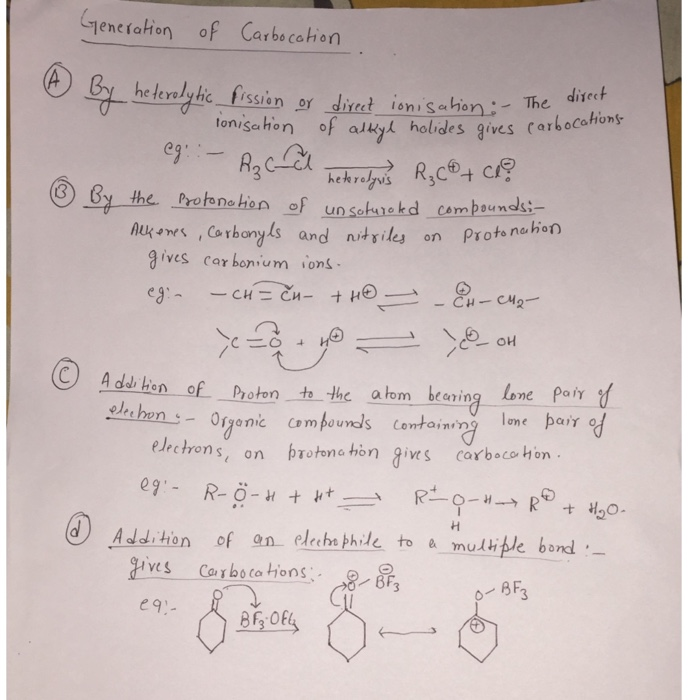 Generation of Carbocation.
(A) By heterolytic fission or direct ionisation:- The direct
ionisation of alkyl halides gives carbocations
eg::- R3C-Cl heterolysis R3C⊕ + Cl⊖
(B) By the Protonation of unsaturated compounds:-
Alkenes, Carbonyls and nitriles on Protonation
gives carbonium ions.
eg:- -CH=CH- + H⊕ ⇌ -CH⊕-CH2-
>C=O + H⊕ ⇌ >C⊕-OH
(C) Addition of Proton to the atom bearing lone pair of
electron:- Organic compounds containing lone pair of
electrons, on protonation gives carbocation.
eg:- R-Ö-H + H+ ⇌ R-O+-H → R⊕ + H2O.
H
(d) Addition of an electrophile to a multiple bond:-
gives Carbocations:-
O⊕-BF3⊖ O-BF3
eg:- O BF3·OEt2 ⟷ ⊕